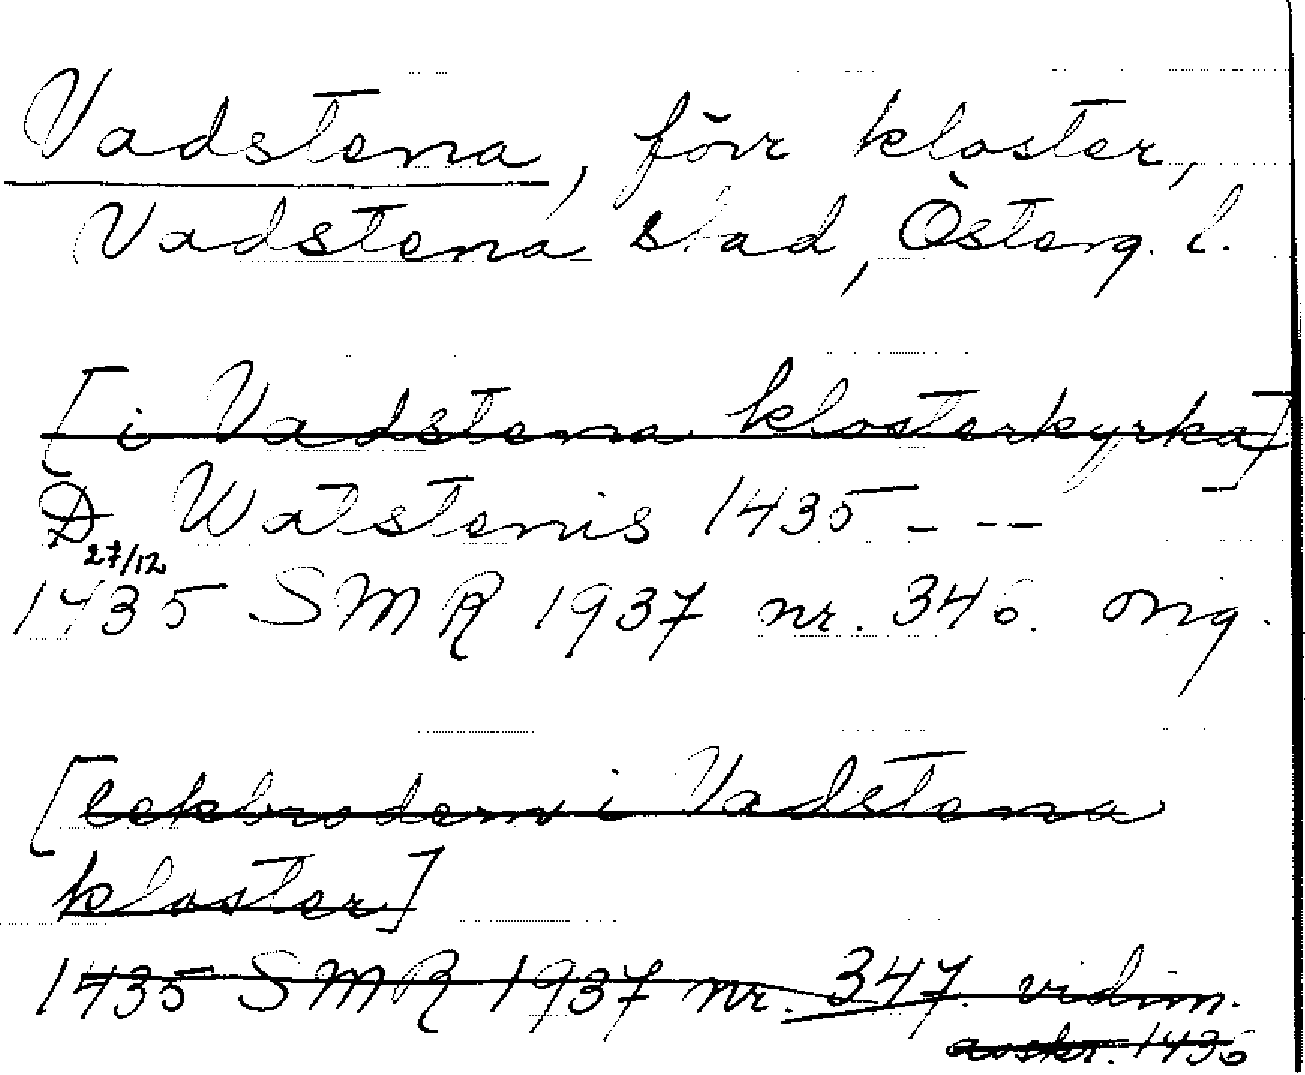 Vadstena, förr kloster,
Vadstena stad, Österg. l.
[i Vadstena klosterkyrka]
D Watstenis 1435 - - -
27/12
1435 SMR 1937 nr. 346. orig.
[lekbrodern i Vadstena
kloster]
1435 SMR 1937 nr. 347. vidim.
avskr. 1436